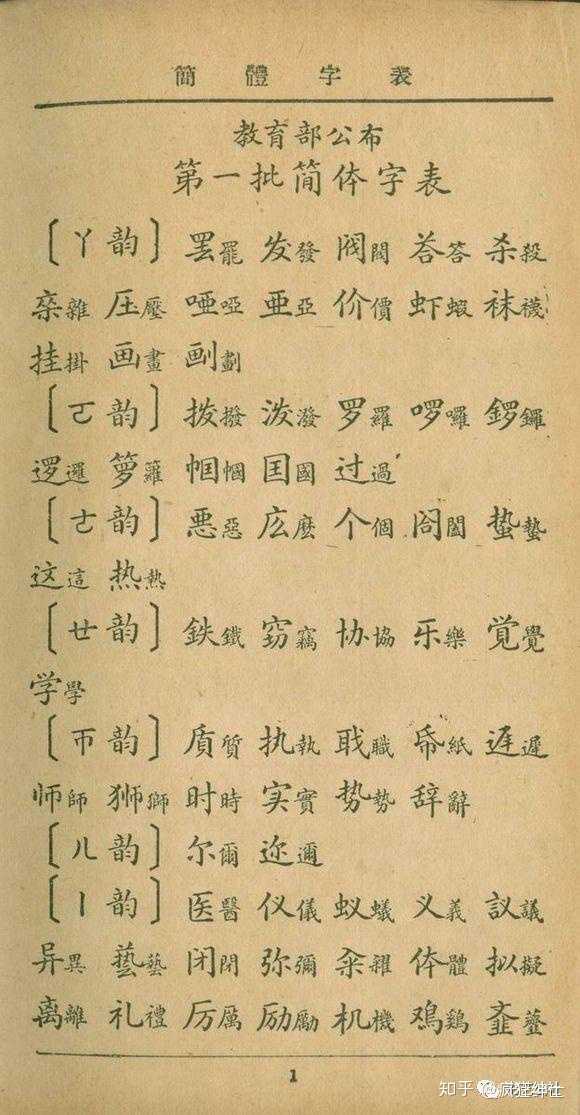 簡體字表
教育部公布
第一批简体字表
〔ㄚ韵〕 罢罷 发發 阀閥 荅答 杀殺
杂雜 压壓 哑啞 亜亞 价價 虾蝦 袜襪
挂掛 画畫 劃
〔ㄛ韵〕 拨撥 泼潑 罗羅 啰囉 鑼
逻邏 箩籮 帼幗 国國 过過
〔ㄜ韵〕 恶惡 庅麽 个個 阁閣 蛰蟄
这這 热熱
〔ㄝ韵〕 鉄鐵 窃竊 协協 乐樂 覚覺
学學
〔ㄭ韵〕 质質 执執 职職 帋紙 迟遲
师師 狮獅 时時 实實 势勢 辞辭
〔ㄦ韵〕 尔爾 迩邇
〔ㄧ韵〕 医醫 仪儀 蚁蟻 义義 議
异異 藝 闭閉 弥彌 籴糴 体體 拟擬
离離 礼禮 厉厲 励勵 机機 鸡鷄 齑虀
1
知乎 @疯狂绅士